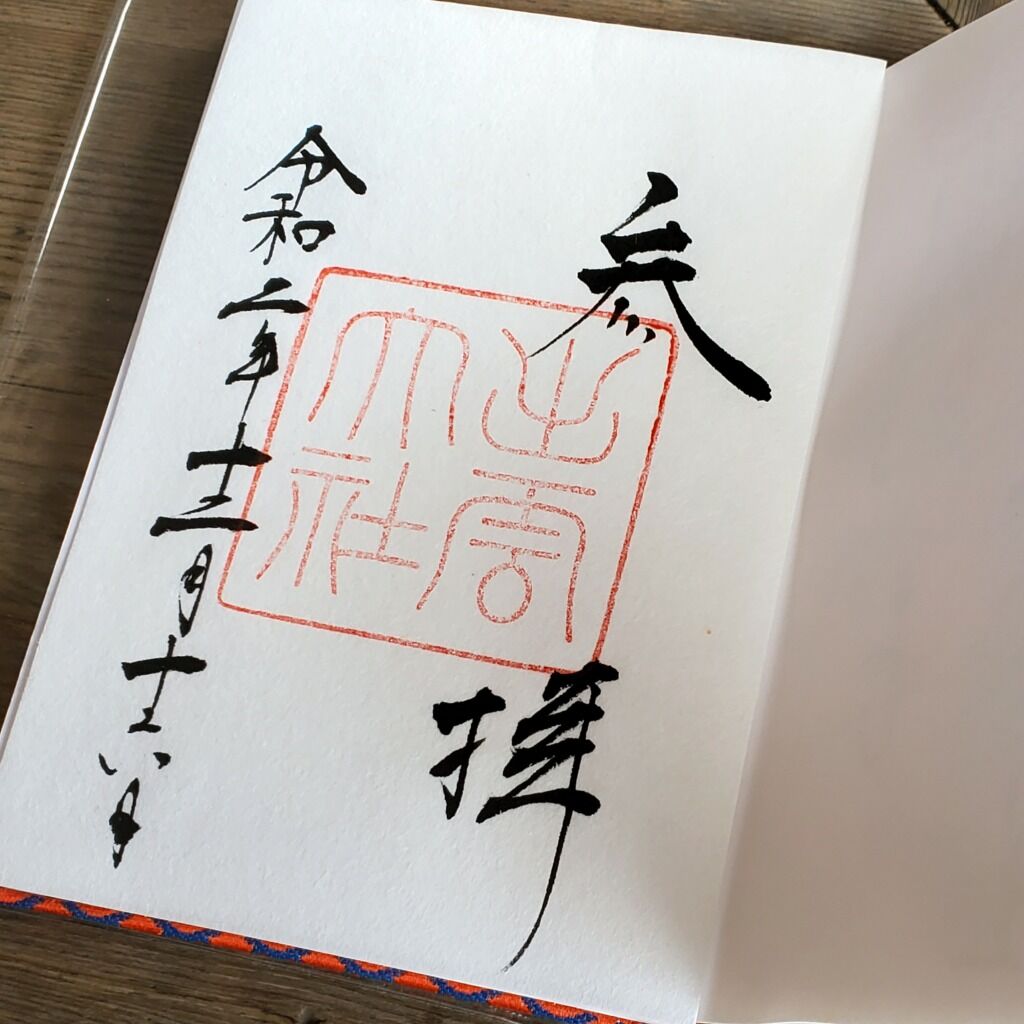 参拝
出雲
大社
令和二年十二月十六日